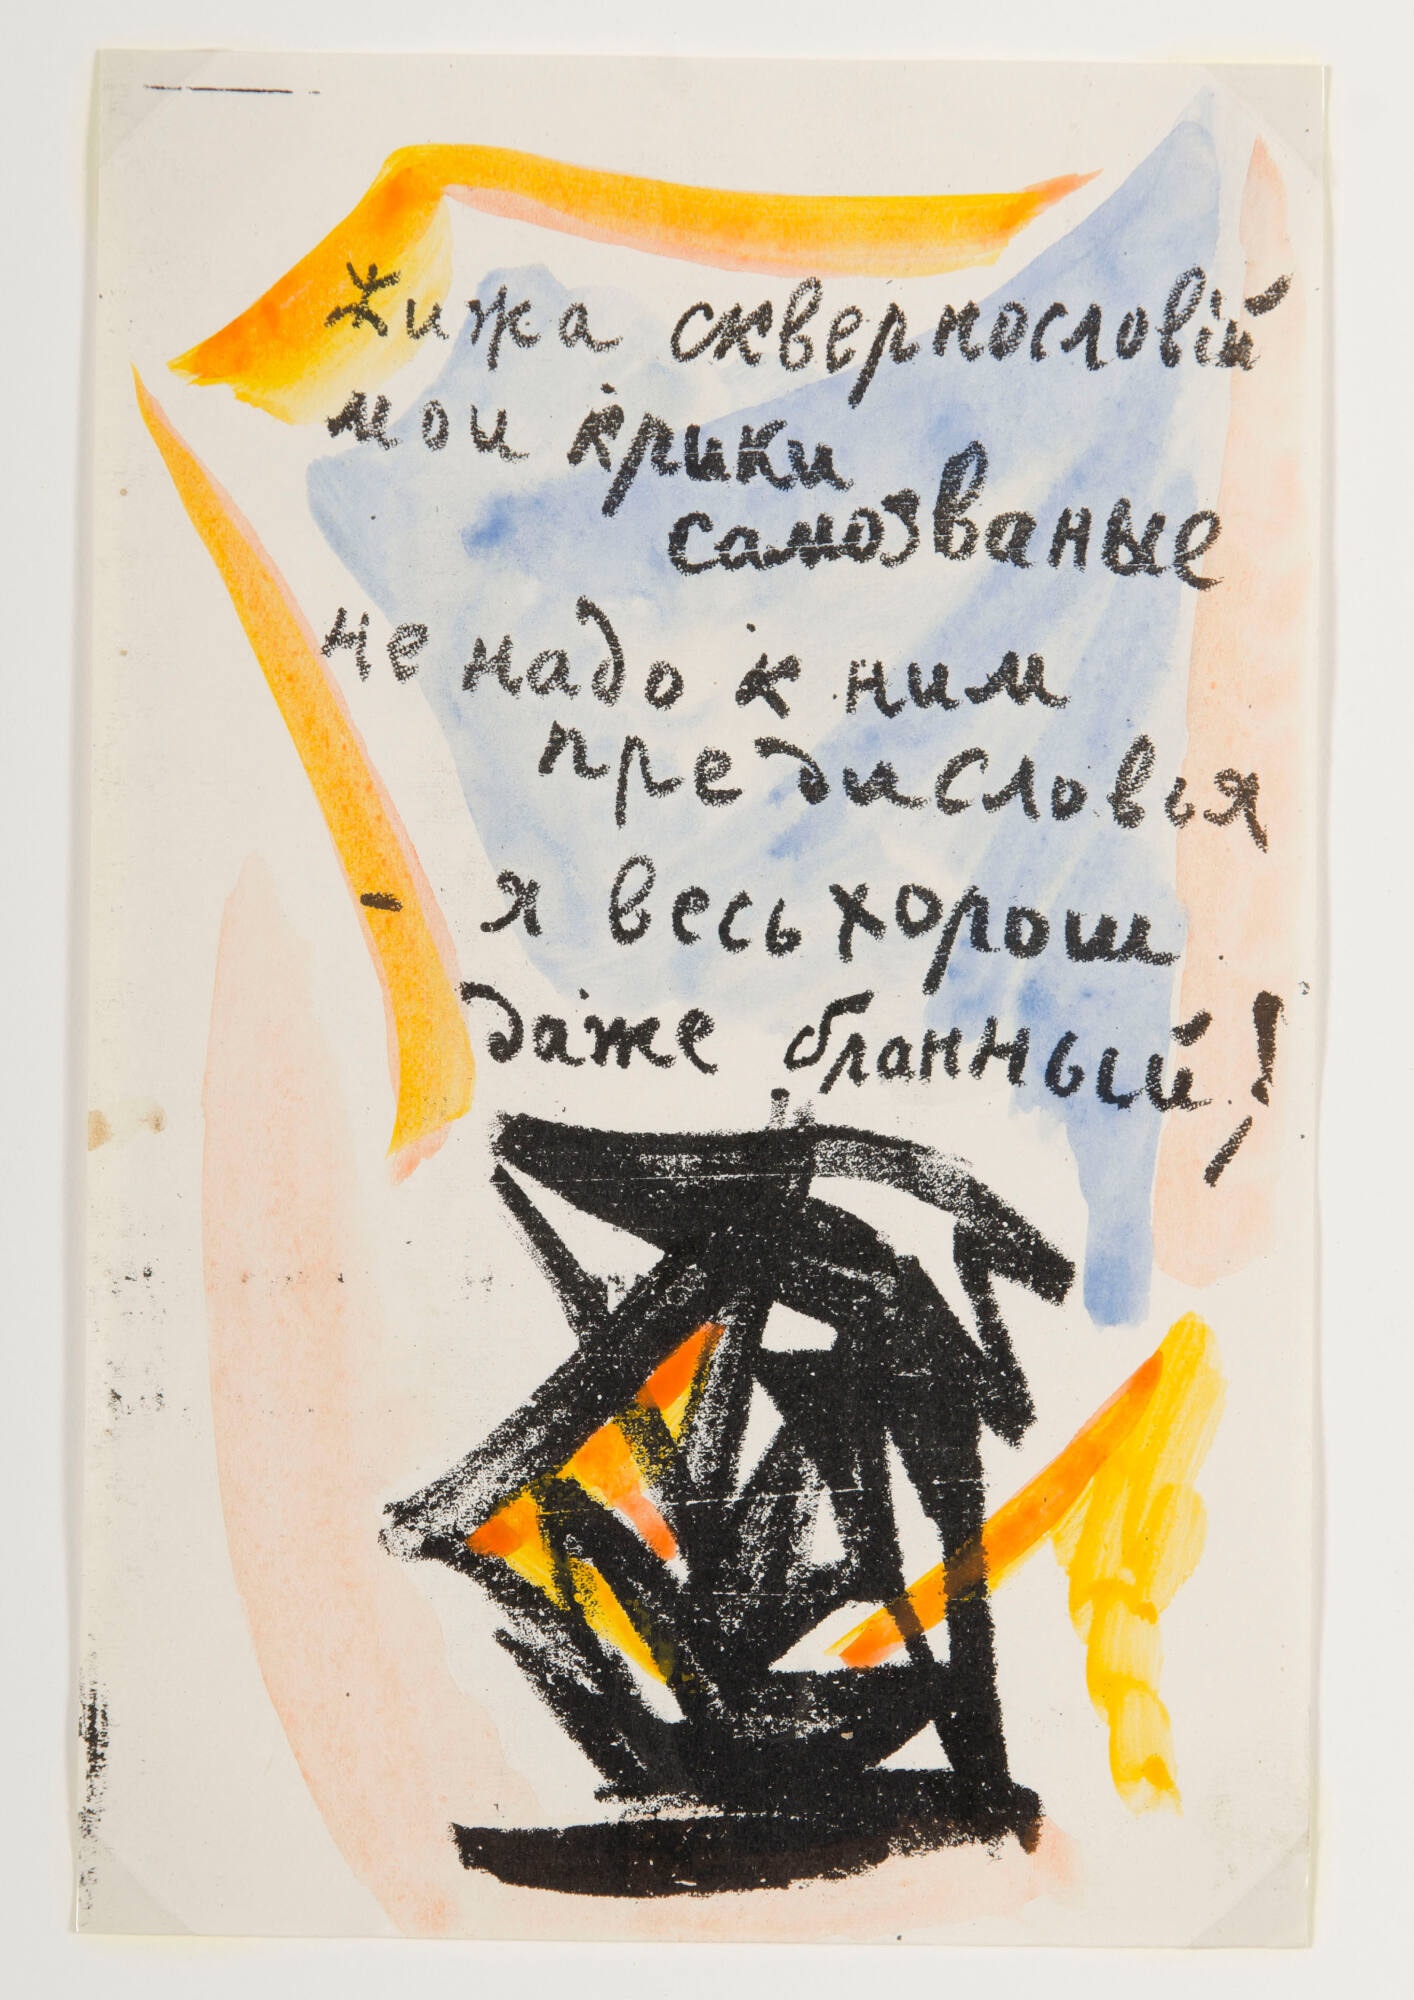 Жижа сквернословій
мои крики
самозваные
не надо к ним
предисловья
- я весь хорош
даже бранный!